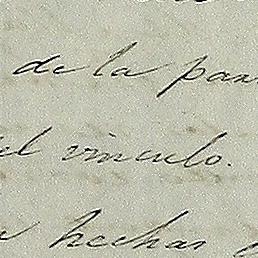 de la par
el vinculo.
hechas